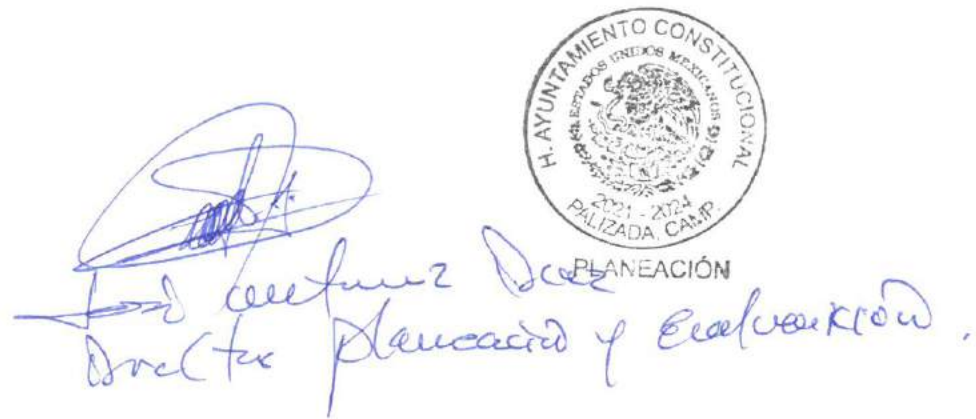 H. AYUNTAMIENTO CONSTITUCIONAL
ESTADOS UNIDOS MEXICANOS
2021 - 2024
PALIZADA, CAMP.
PLANEACIÓN
José Díaz
Director planeación y Evaluación.